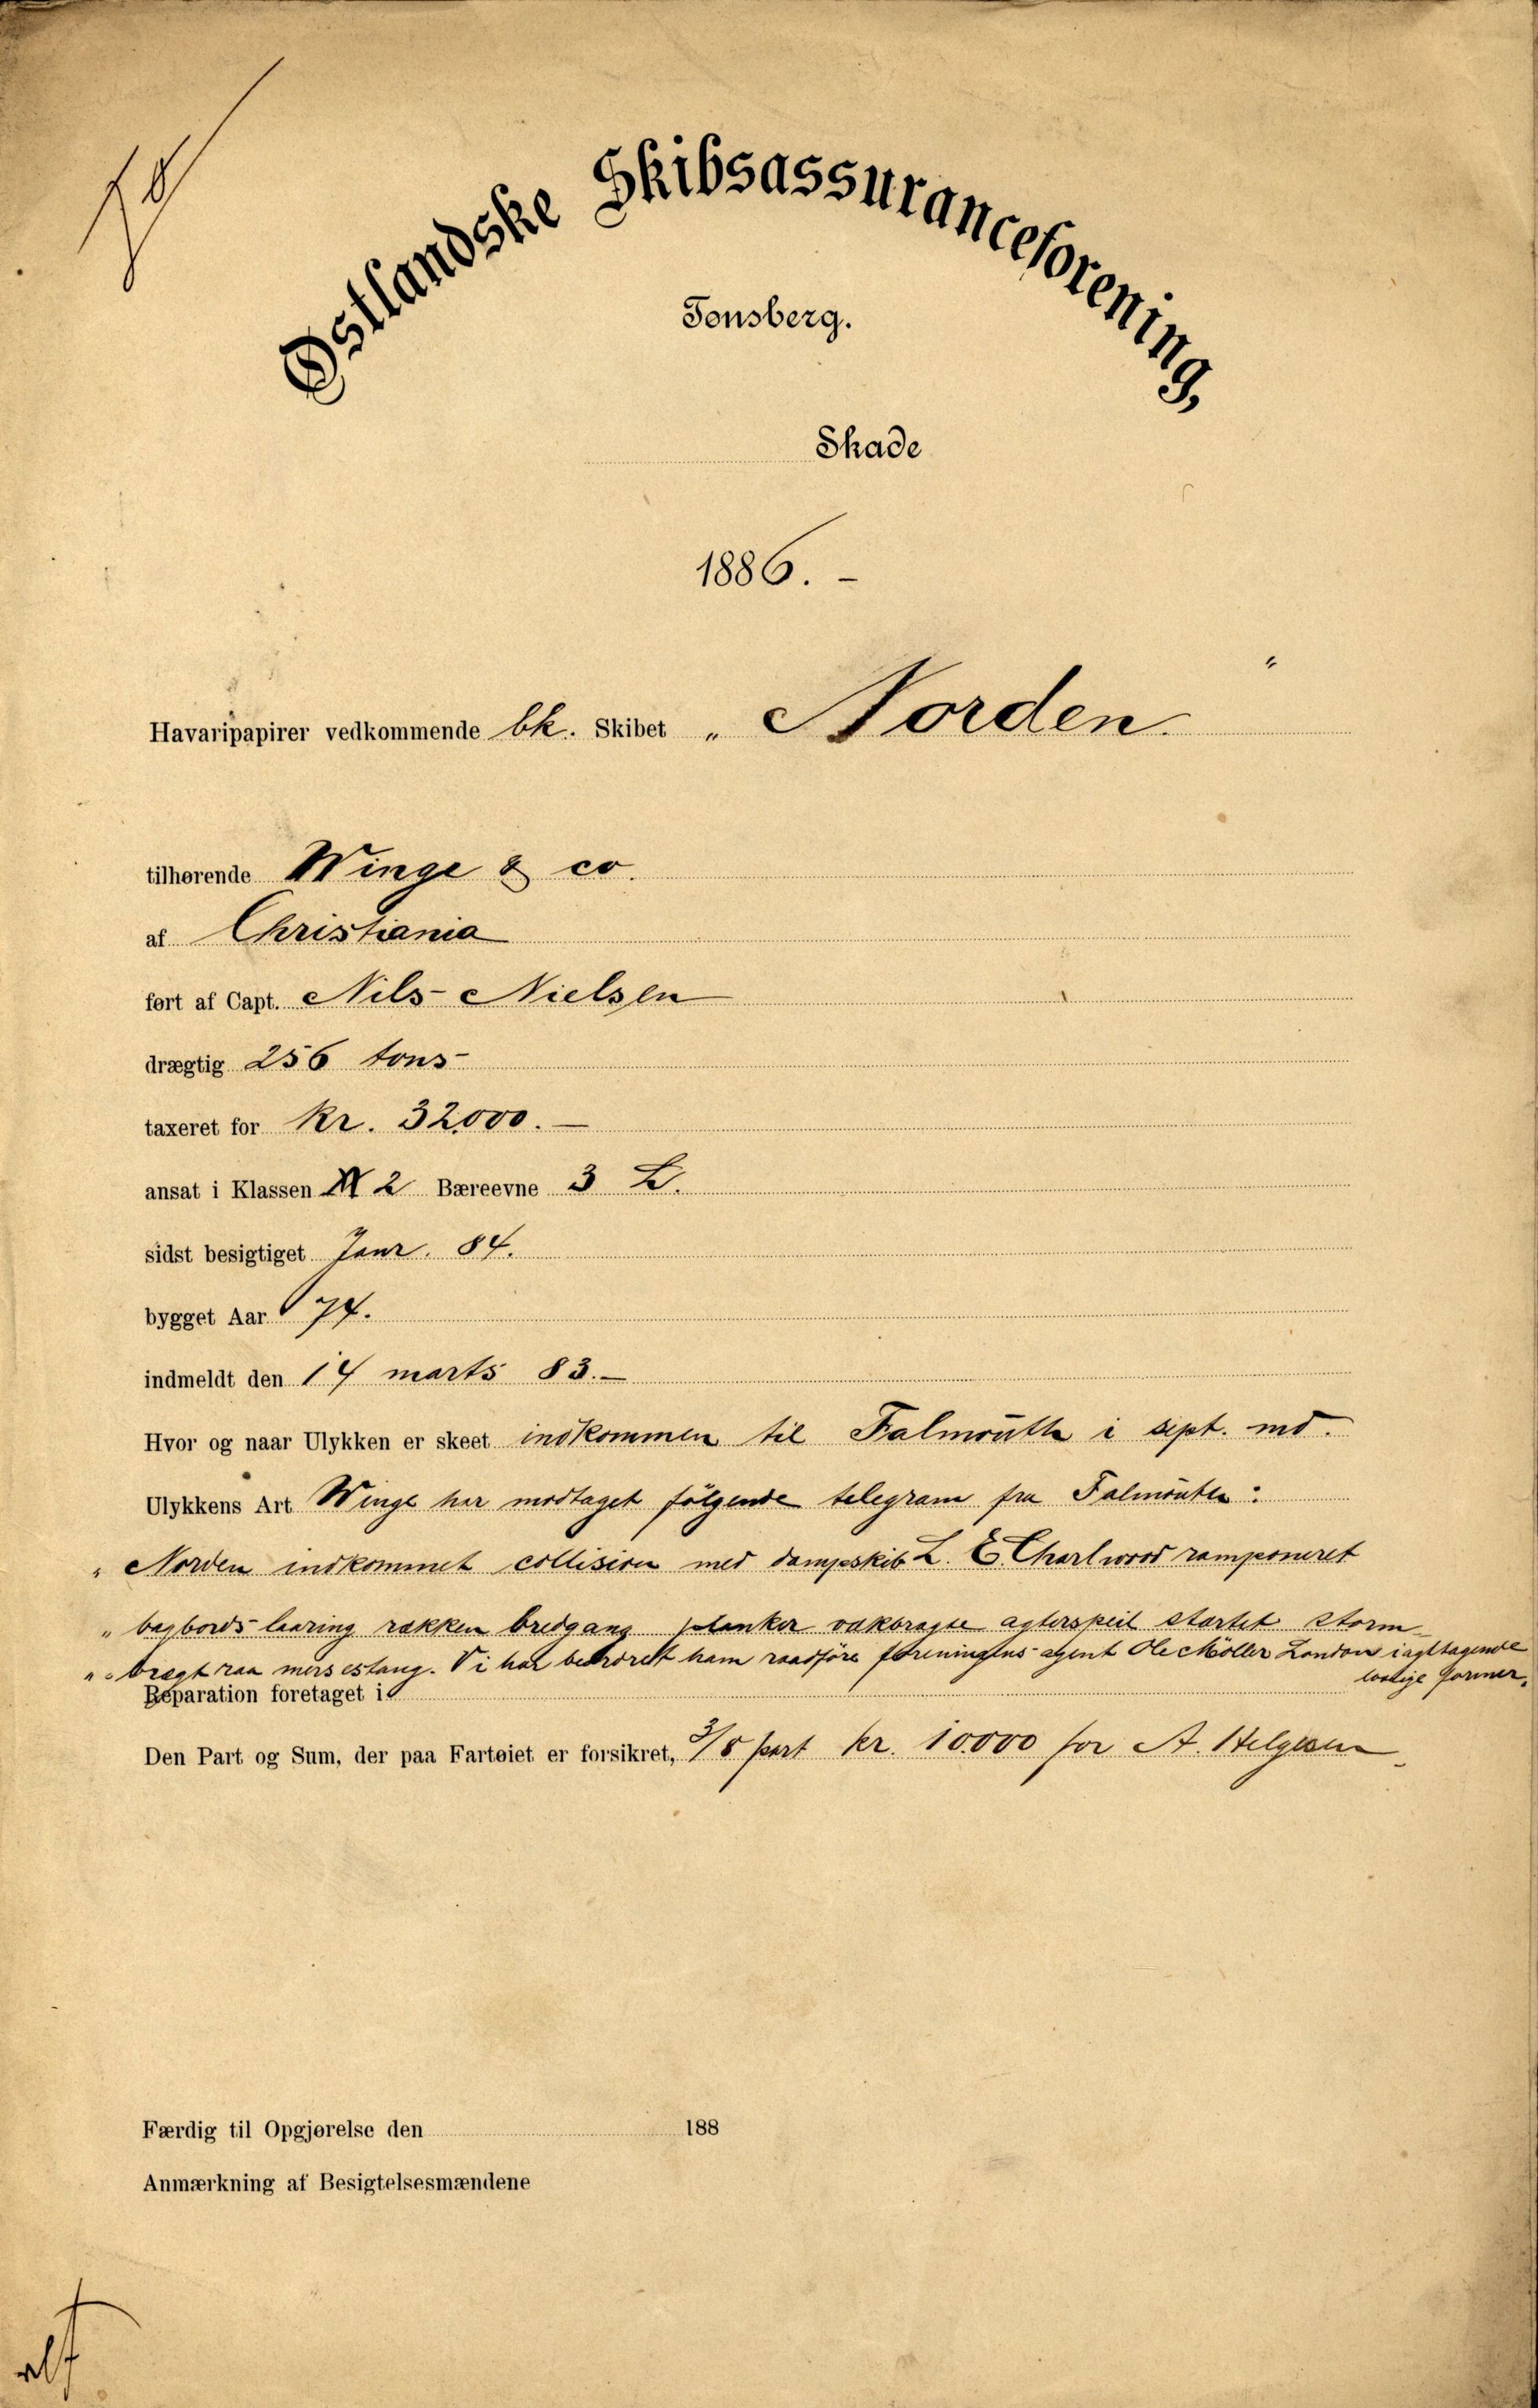 Østlandske Skibsassuranceforening,
Tønsberg.
Skade
1886. –
Havaripapirer vedkommende bk. Skibet „ Norden. “
tilhørende Winge & co.
af Christiania
ført af Capt. Nils Nielsen
drægtig 256 tons
taxeret for Kr. 32,000. —
ansat i Klassen 2 Bæreevne 3 L.
sidst besigtiget Janr. 84.
bygget Aar 74.
indmeldt den 14 marts 83. –
Hvor og naar Ulykken er skeet indkommen til Falmouth i sept. md.
Ulykkens Art Winge har modtaget følgende telegram fra Falmouth:
" Norden indkommet collision med dampskib L. E. Charlwood ramponeret
" bagbords laaring rækken bredgang planker vakbragte agterspeil startet storm
" bragt raa mersestang. Vi har beordret ham raadføre foreningens agent Ole Møller London iagttagende
lovlige former.
Reparation foretaget i
Den Part og Sum, der paa Fartøiet er forsikret, 3/8 part kr. 10.000 for A. Helgesen
Færdig til Opgjørelse den 188
Anmærkning af Besigtelsesmændene
alf